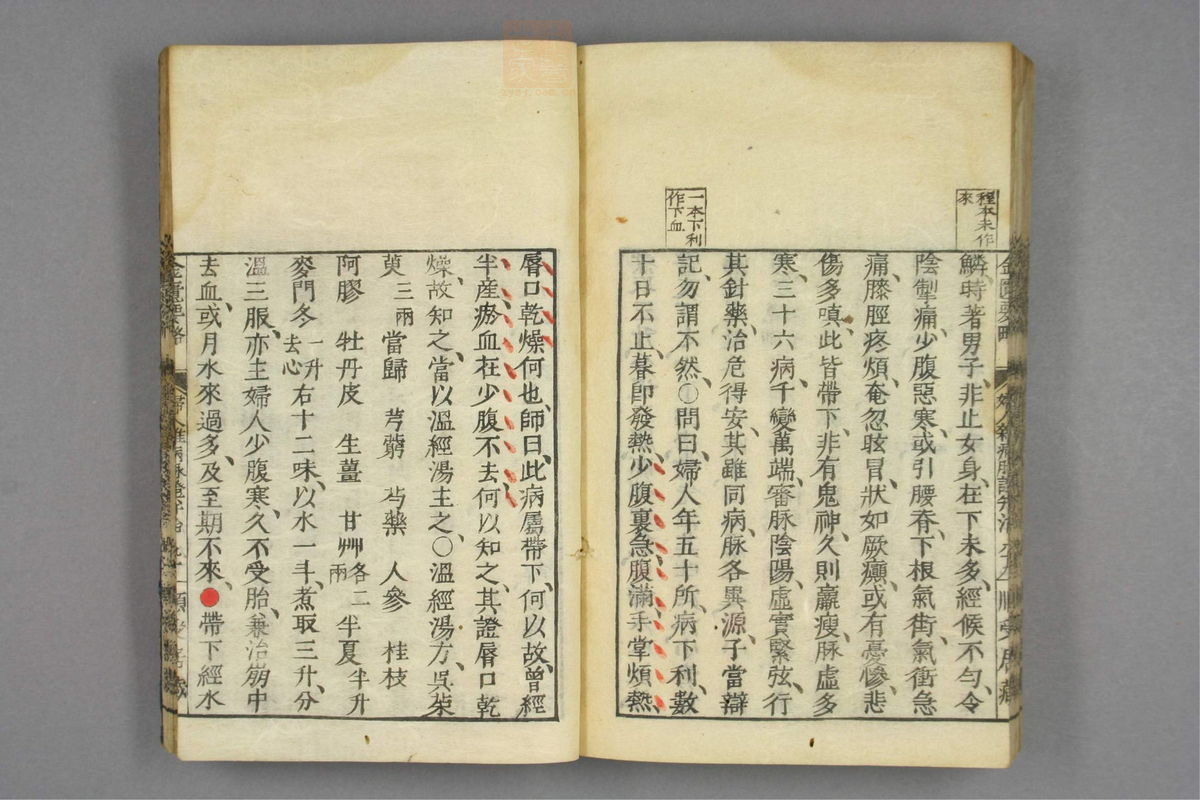 程本未作
來
一本下利
作下血
鱗時著男子非止女身在下未多經候不勻令
陰掣痛少腹惡寒或引腰脊下根氣街氣衝急
痛膝脛疼煩奄忽眩冒狀如厥癲或有憂慘悲
傷多嗔此皆帶下非有鬼神久則羸瘦脉虛多
寒三十六病千變萬端審脉陰陽虛實緊弦行
其針藥治危得安其雖同病脉各異源子當辯
記勿謂不然○問曰婦人年五十所病下利數
十日不止暮即發熱少腹裏急腹滿手掌煩熱
脣口乾燥何也師曰此病屬帶下何以故曾經
半産瘀血在少腹不去何以知之其證脣口乾
燥故知之當以溫經湯主之○溫經湯方吳茱
萸三兩 當歸 芎藭 芍藥 人參 桂枝
阿膠 牡丹皮 生薑 甘艸各二兩 半夏半升
麥門冬一升去心 右十二味以水一斗煮取三升分
溫三服亦主婦人少腹寒久不受胎兼治崩中
去血或月水來過多及至期不來●帶下經水
金匱要略